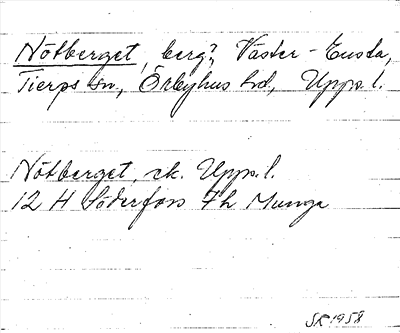 Nötberget, berg?, Väster-Ensta,
Tierps sn, Örbyhus hd, Uppl.
Nötberget, ek. Uppl.
12 H Söderfors 7h Munga
SR 1958